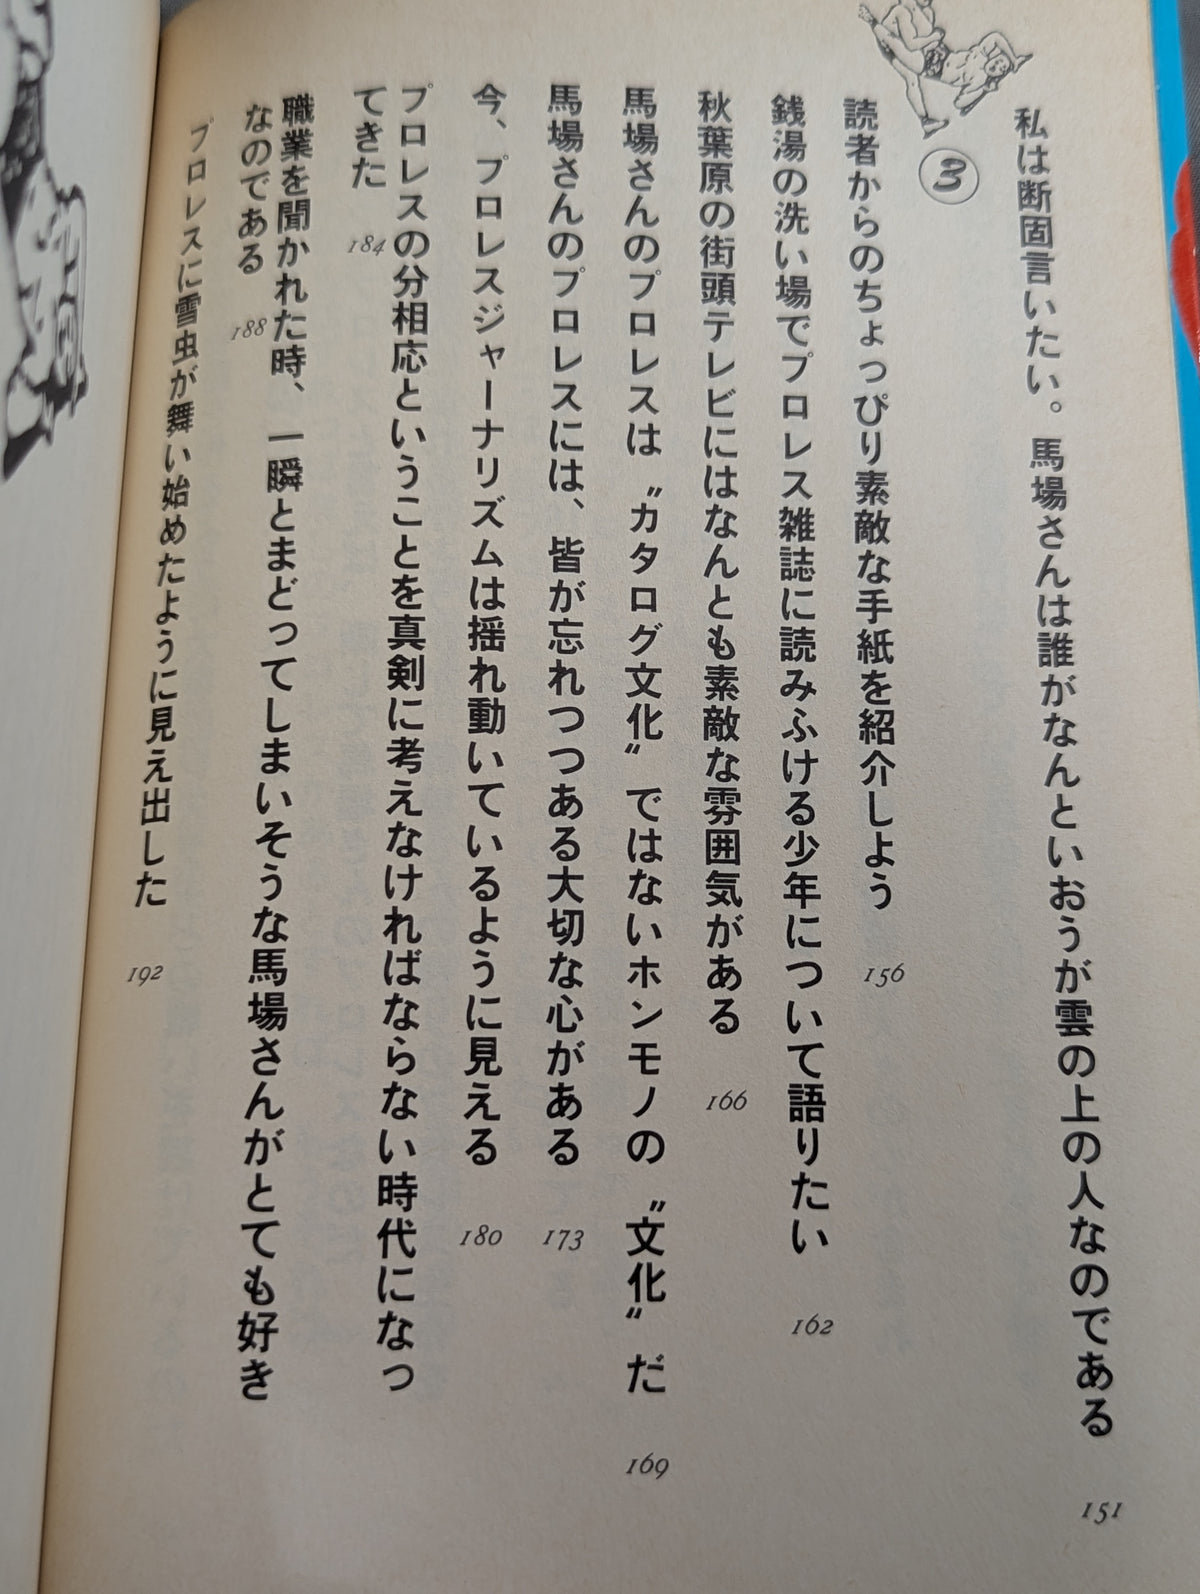 私は断固言いたい。馬場さんは誰がなんといおうが雲の上の人なのである 151
③
読者からのちょっぴり素敵な手紙を紹介しよう 156
銭湯の洗い場でプロレス雑誌に読みふける少年について語りたい 162
秋葉原の街頭テレビにはなんとも素敵な雰囲気がある 166
馬場さんのプロレスは〝カタログ文化〟ではないホンモノの〝文化〟だ 169
馬場さんのプロレスには、皆が忘れつつある大切な心がある 173
今、プロレスジャーナリズムは揺れ動いているように見える 180
プロレスの分相応ということを真剣に考えなければならない時代になっ
てきた 184
職業を聞かれた時、一瞬とまどってしまいそうな馬場さんがとても好き
なのである 188
プロレスに雪虫が舞い始めたように見え出した 192